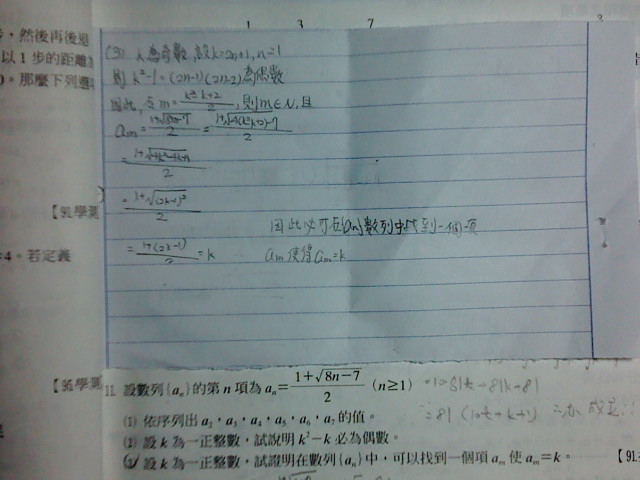 1 3 7 3
，然後再後退
以 1 步的距離
。那麼下列選
(3) k為奇數,設k=2n+1, n≥1
則 k²-1=(2n-1)(2n-2)為偶數
因此,令m=k²-k+2/2,則m∈N,且
am=1+√8m-7/2=1+√4(k²-k+2)-7/2
=1+√4k²-4k+1/2
=1+√(2k-1)²/2
【91.學測
因此必可在{an}數列中找到一個項
=4。若定義
=1+(2k-1)/2=k
am使得am=k
11. 設數列{aₙ}的第 n 項為 aₙ=1+√8n-7/2 (n≥1)
(1) 依序列出 a₂，a₃，a₄，a₅，a₆，a₇的值。
=81(10k+k+1) 亦成立
(2) 設 k 為一正整數，試說明 k²-k 必為偶數。
(3) 設 k 為一正整數，試證明在數列{aₙ}中，可以找到一個項 aₘ 使 aₘ=k。
【91.